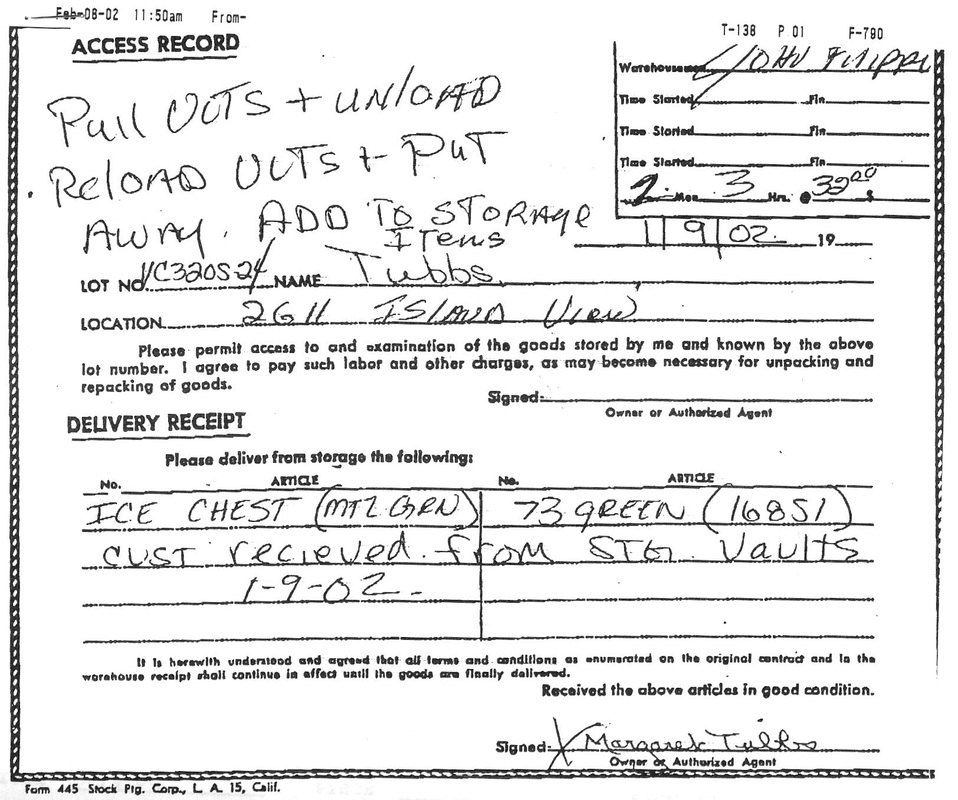 Feb-08-02 11:50am From-
T-138 P 01 F-790
ACCESS RECORD
Warehouseman John Filippi
Time Started Fin
Time Started Fin
Time Started Fin
2 Men 3 Hrs. @ 32.00 $
Pull VLTS + UNLOAD
Reload VLTS + Put
AWAY. ADD To STORAGE
Items
1/9/02 19
LOT NO. VC3205-24 NAME Tubbs
LOCATION 2611 Island View
Please permit access to and examination of the goods stored by me and known by the above
lot number. I agree to pay such labor and other charges, as may become necessary for unpacking and
repacking of goods.
Signed:
Owner or Authorized Agent
DELIVERY RECEIPT
Please deliver from storage the following:
No. ARTICLE No. ARTICLE
ICE CHEST (MTL GRN) 73 GREEN (16851)
CUST recieved from STG. Vaults
1-9-02.
It is herewith understood and agreed that all terms and conditions as enumerated on the original contract and in the
warehouse receipt shall continue in effect until the goods are finally delivered.
Received the above articles in good condition.
Signed: X Margaret Tubbs
Owner or Authorized Agent
Form 445 Stock Ptg. Corp., L. A. 15, Calif.